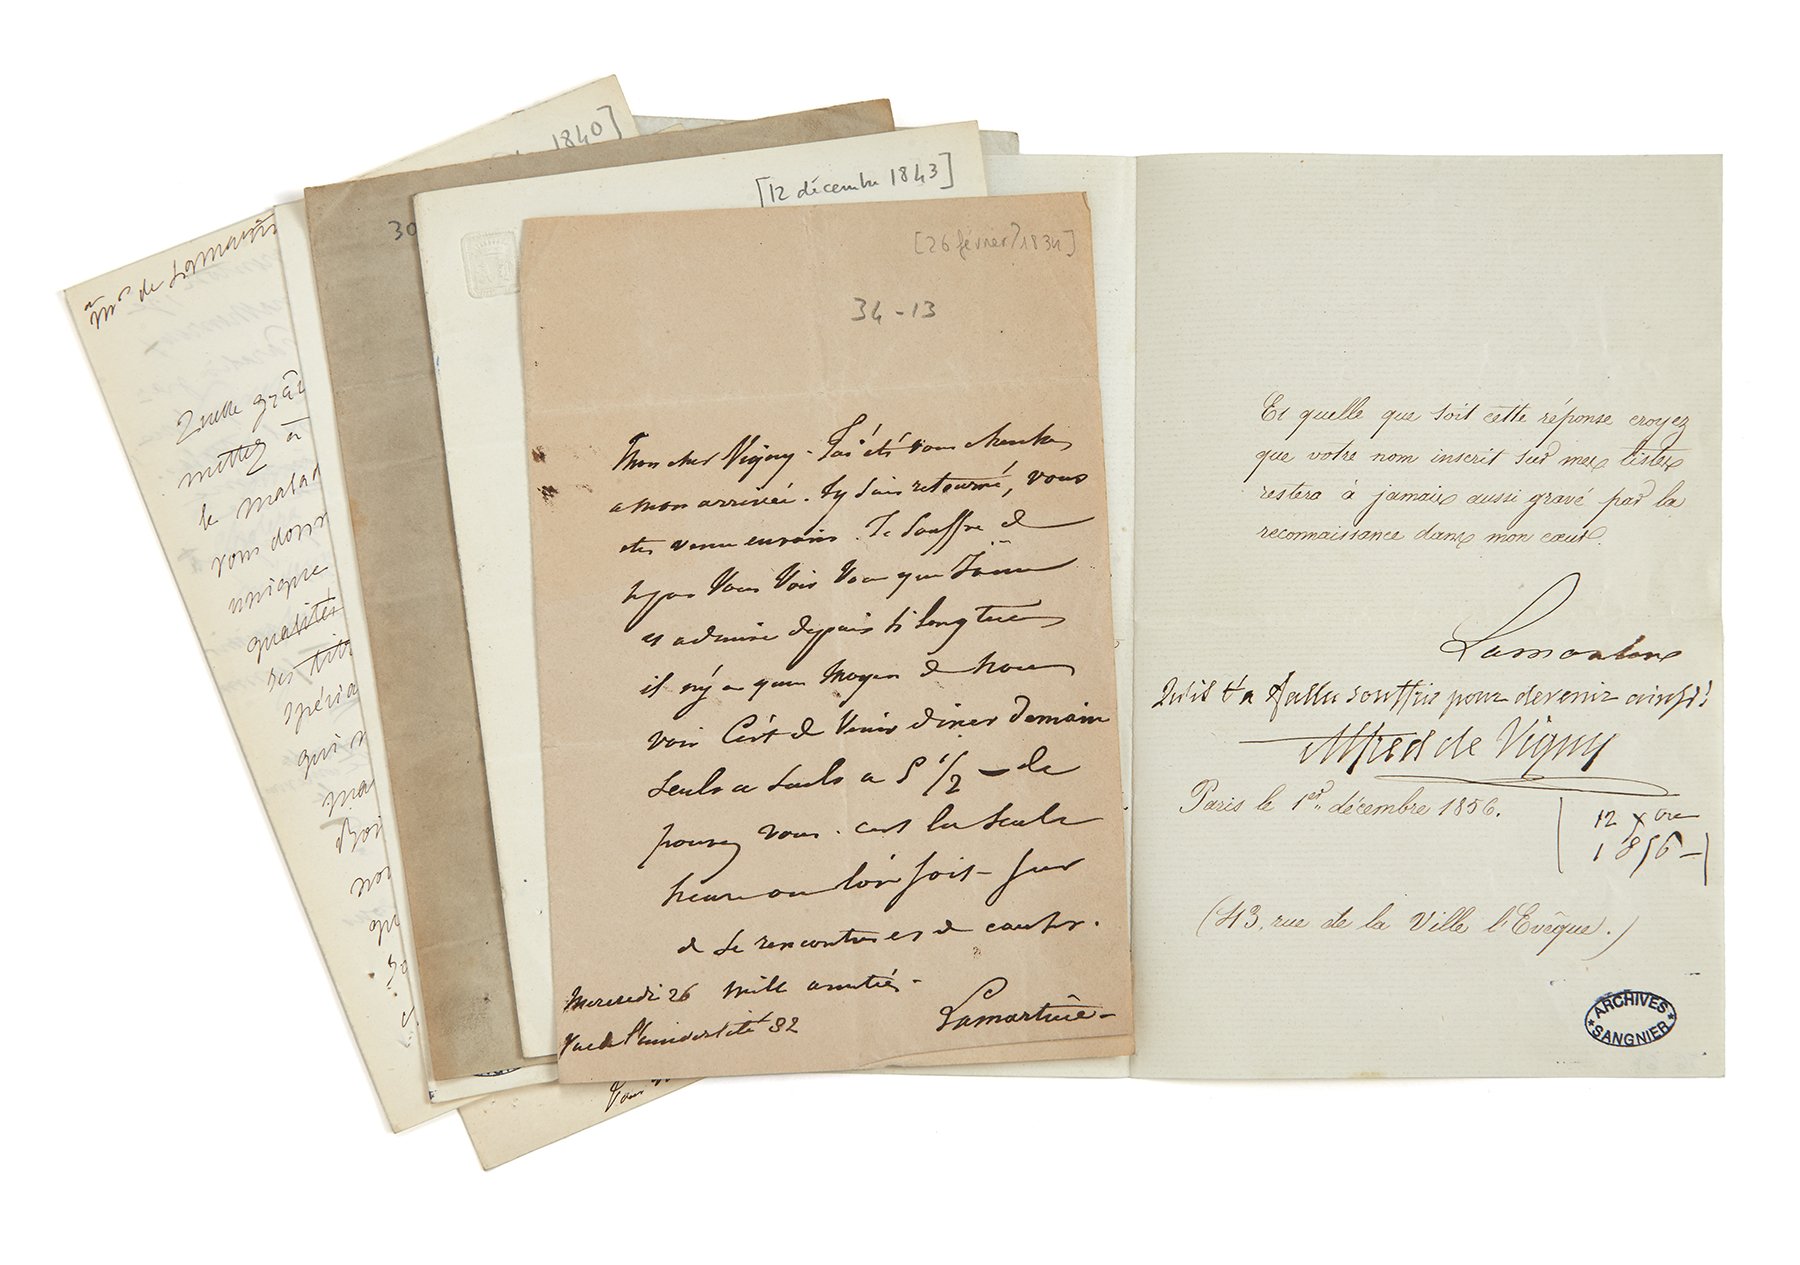 1840]
à Me de Lamartin
Quelle grâc
mettez à
le malad
vous donn
unique
qualités
ses
spécia
qui n
mai
noi
30
[12 décembre 1843]
[26 février? 1834]
34-13
Mon cher Vigny - J'ai été vous cherché
a mon arrivée. J'y suis retourné, vous
etes venu envain. Je souffre de
ne pas vous voir vous que j'aime
et admire depuis si longtems
il n'y a qu'un moyen de nous
voir C'est de venir diner demain
seuls a seuls a 5 1/2 - le
pouvez vous. c'est la seule
heure ou l'on soit - sur
de se rencontrer et de causer.
Mercredi 26 mille amitiés -
rue de l'université 82
Lamartine -
Et quelle que soit cette réponse croyez
que votre nom inscrit sur mes listes
restera à jamais aussi gravé par la
reconnaissance dans mon cœur.
Lamartine
Qu'il t'a fallu souffrir pour devenir ainsi!
Alfred de Vigny
Paris le 1er décembre 1856.
12 Xbre
1856 -
(43, rue de la Ville l'Evêque.)
ARCHIVES
SANGNIER